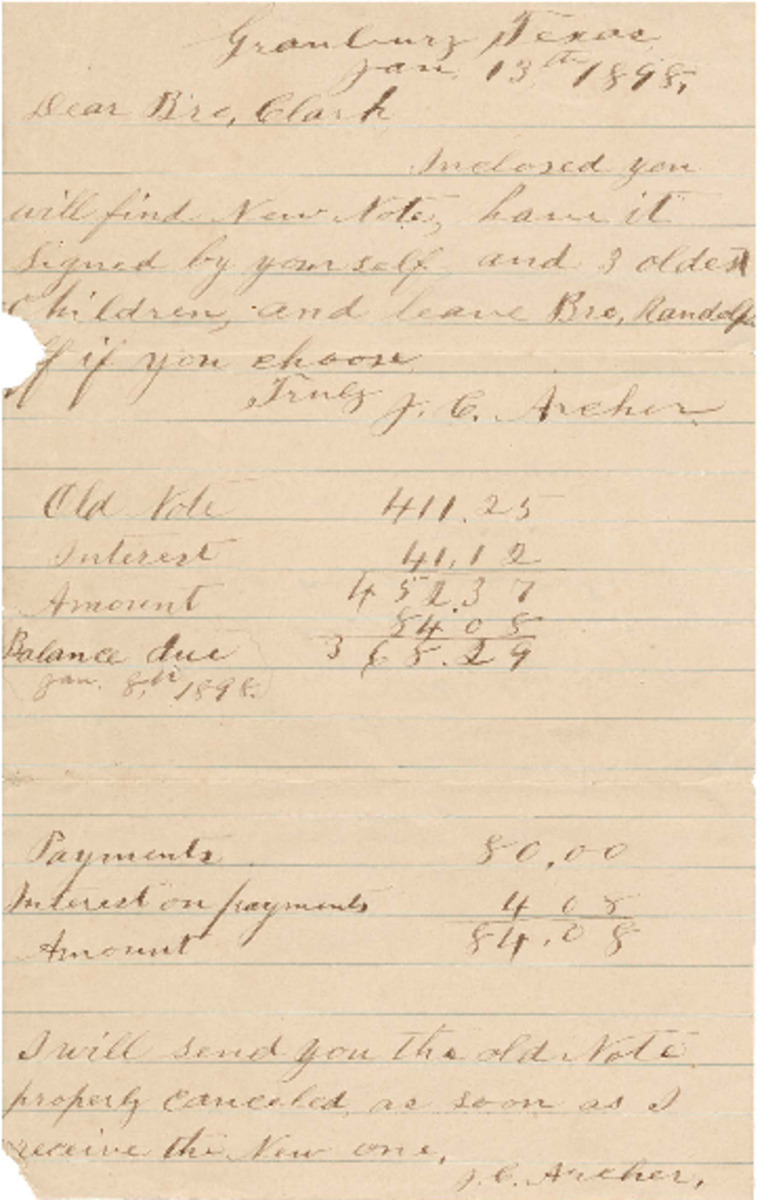 Granbury Texas
Jan. 13th 1898,
Dear Bro, Clark
Inclosed you
will find New Note, have it
Signed by yourself and 3 oldest
Children, and leave Bro, Randolph
off if you choose
Truly J. C. Archer
Old Note 411.25
Interest 41.12
Amount 452.37
84.08
Balance due 368.29
Jan. 8th 1898.
Payments 80.00
Interest on payments 4 08
Amount 84.08
I will send you the old Note
properly canceled as soon as I
receive the New one,
J. C. Archer,